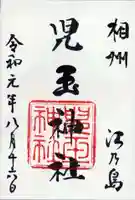 相州
江乃島
児玉神社
令和元年八月十六日